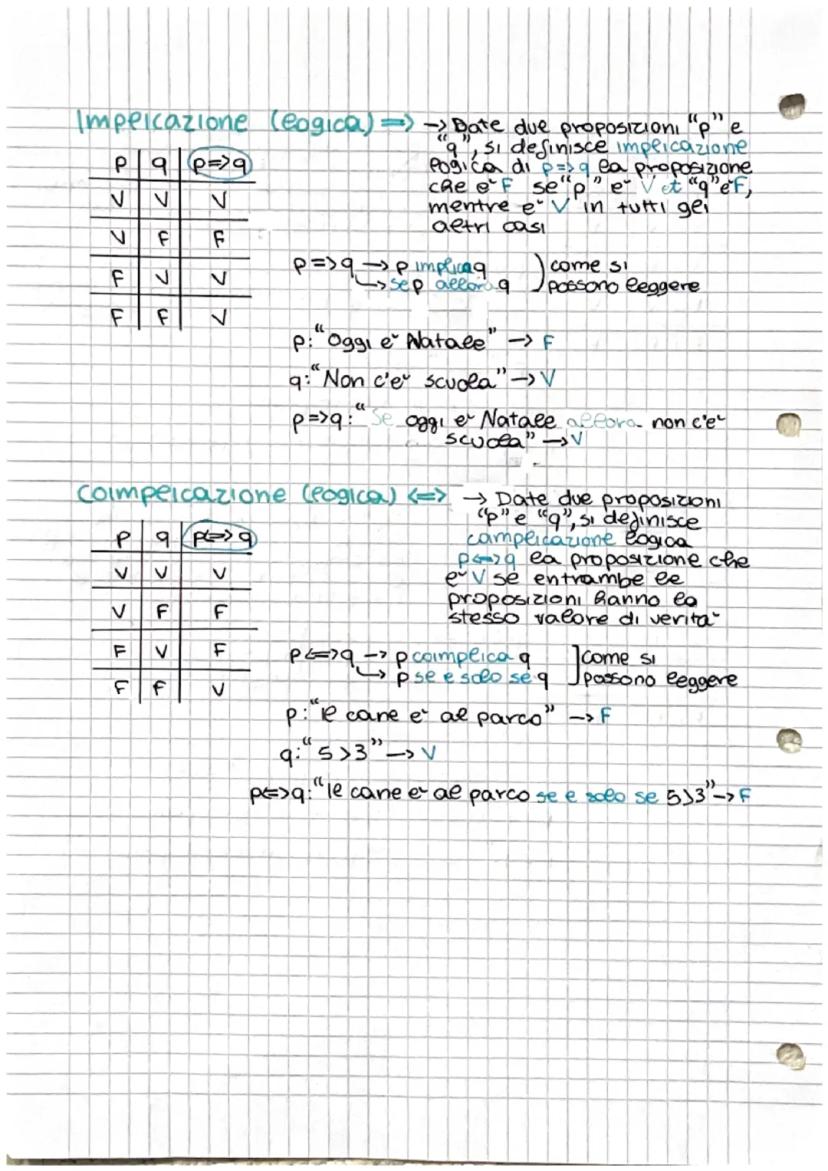 Implicazione (logica) => → Date due proposizioni "p" e
"q", si definisce implicazione
logica di p=>q la proposizione
che è F se "p" è V et "q" è F,
mentre è V in tutti gli
altri casi
p q p=>q
V V V
V F F
F V V
F F V
p=>q → p implica q
↳ se p allora q
come si
possono leggere
p: "Oggi è Natale" → F
q: "Non c'è scuola" → V
p=>q: "Se oggi è Natale allora non c'è
scuola" → V
Coimplicazione (logica) <=> → Date due proposizioni
"p" e "q", si definisce
campeicazione logica
p<=>q la proposizione che
è V se entrambe le
proposizioni hanno lo
stesso valore di verità
p q p<=>q
V V V
V F F
F V F
F F V
p<=>q → p coimplica q
↳ p se e solo se q
come si
possono leggere
p: "Il cane è al parco" → F
q: "5>3" → V
p<=>q: "Il cane è al parco se e solo se 5>3" → F